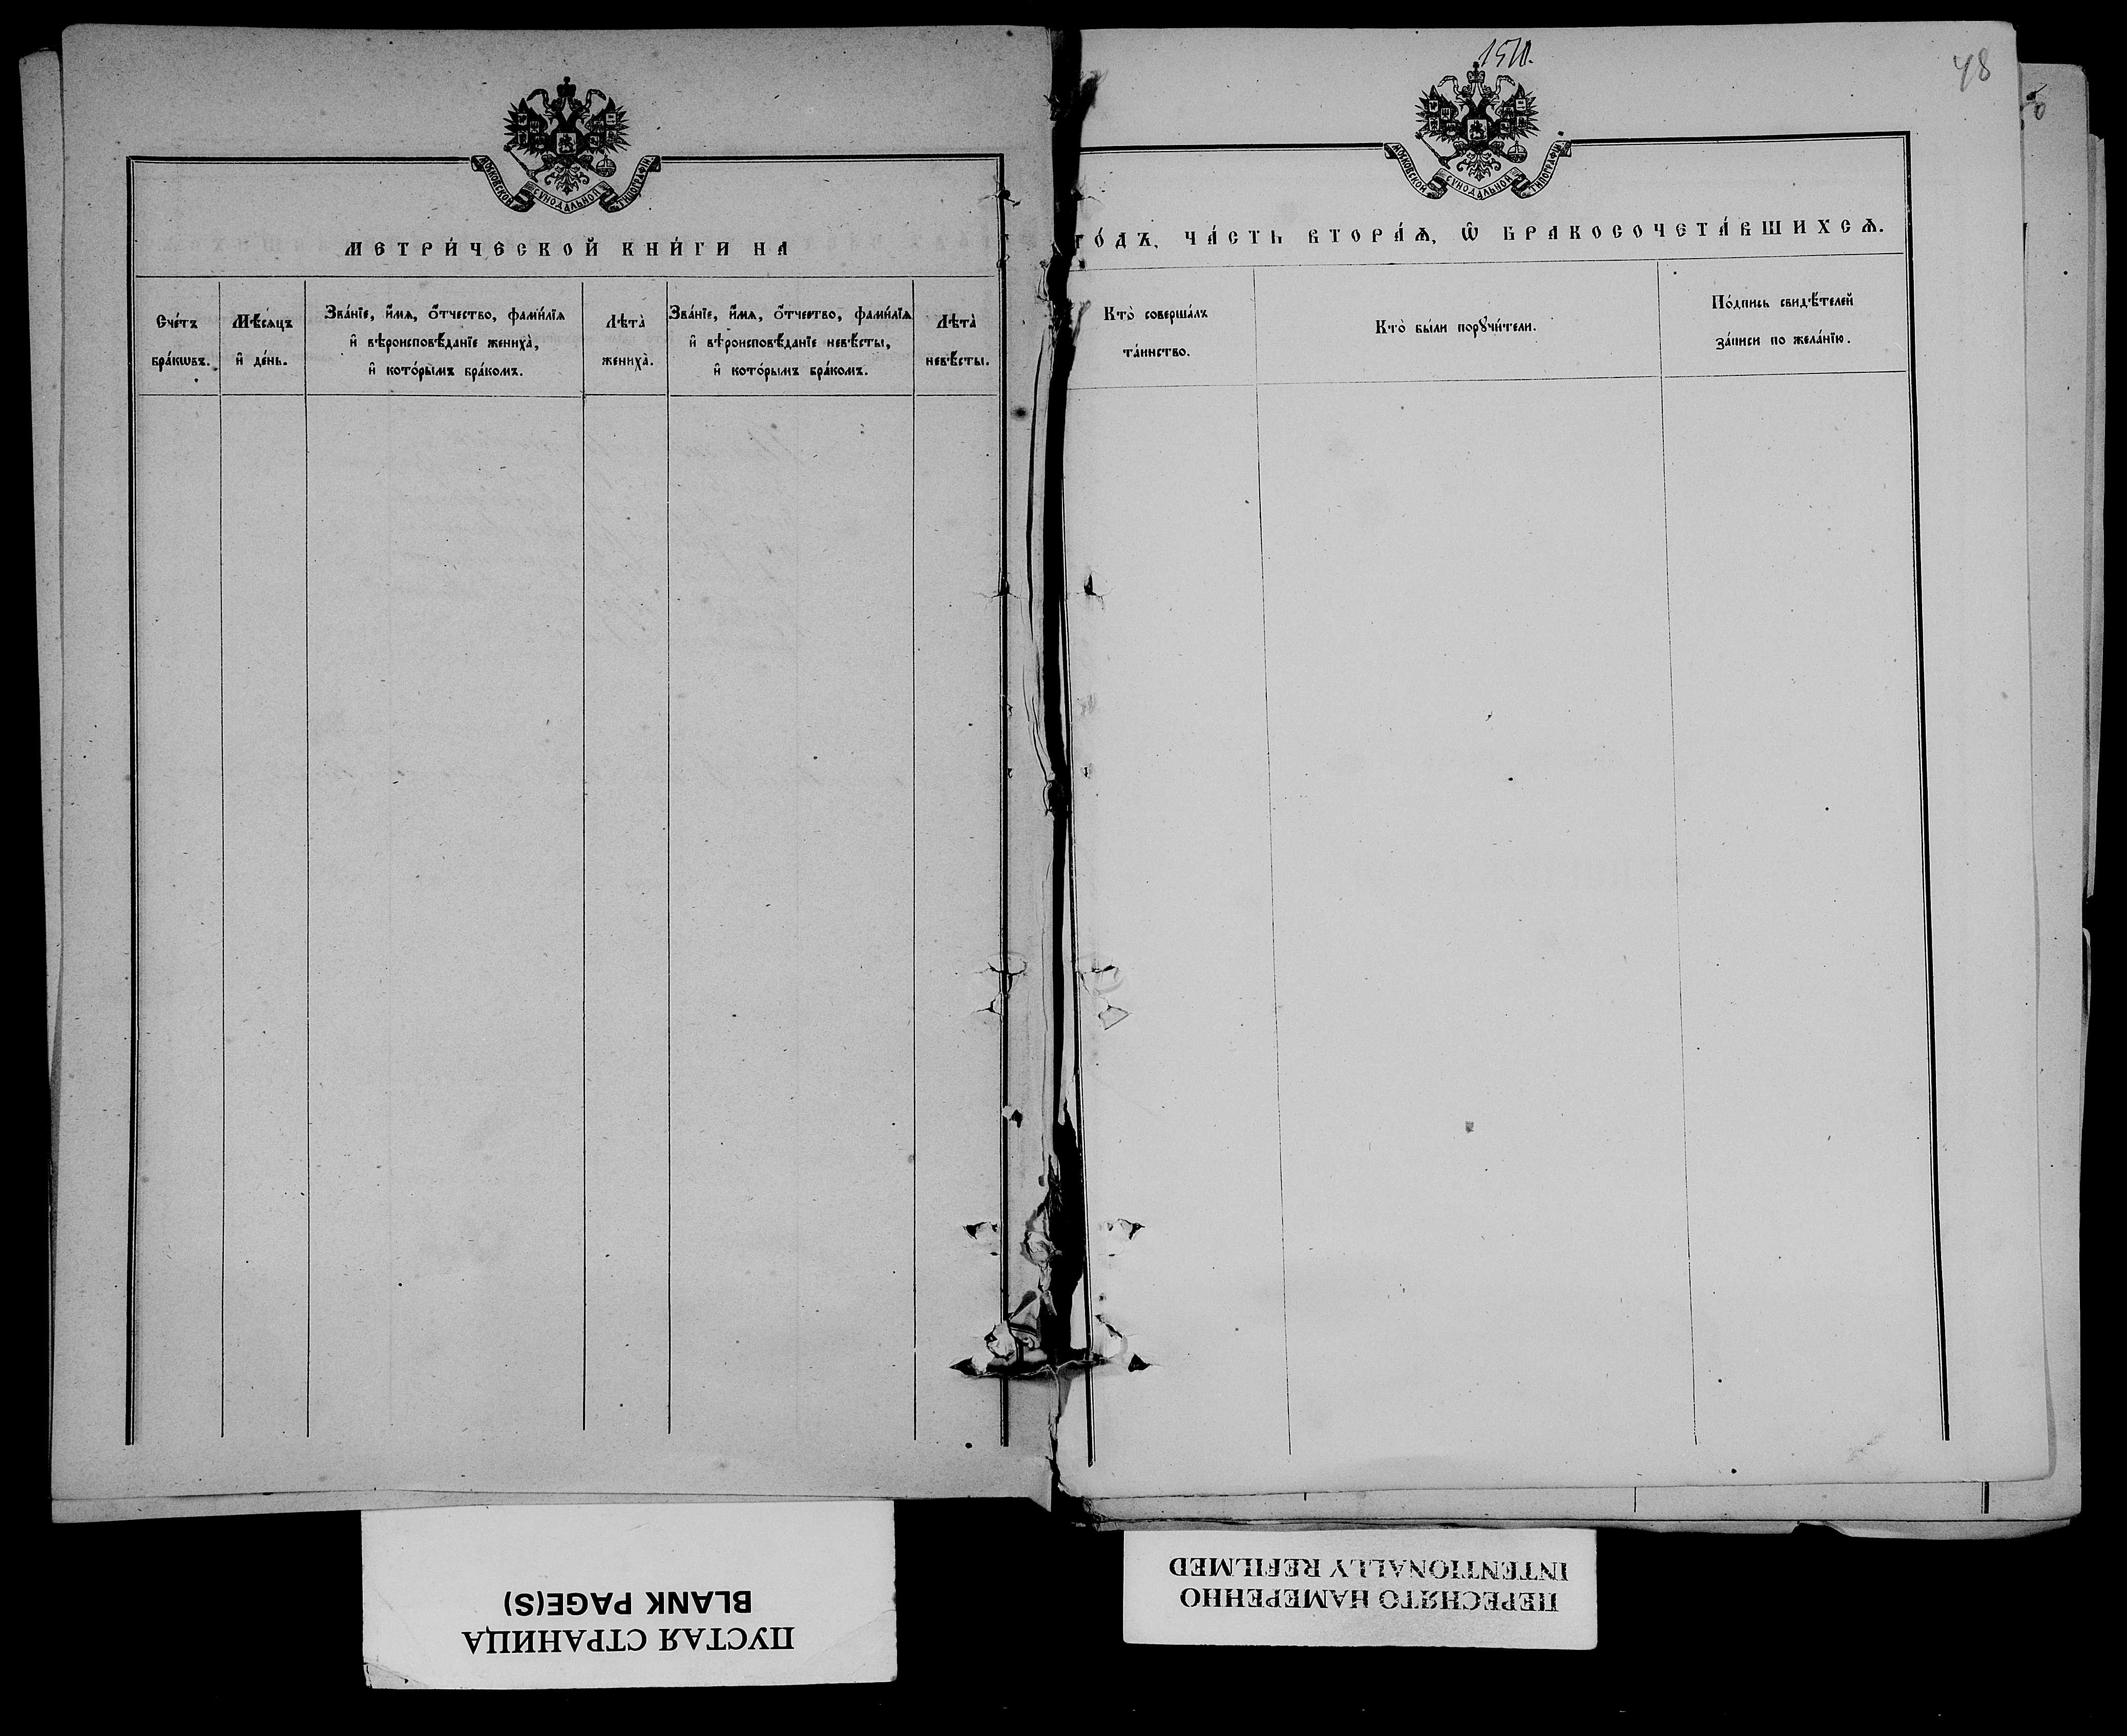 МОСКОВСКОЙ СѴНОДАЛЬНОЙ ТИПОГРАФІИ.
МЕТРИ́ЧЕСКОЙ КНИ́ГИ НА
Сче́тъ
бра́кѡвъ.
Мѣ́сѧцъ
и҆ де́нь.
Зва́нїе, и҆́мѧ, ѻ҆́тчество, фами́лїѧ
и҆ вѣроисповѣ́данїе жениха̀,
и҆ кото́рымъ бра́комъ.
Лѣта̀
жениха̀.
Зва́нїе, и҆́мѧ, ѻ҆́тчество, фами́лїѧ
и҆ вѣроисповѣ́данїе невѣ́сты,
и҆ кото́рымъ бра́комъ.
Лѣта̀
невѣ́сты.
48
МОСКОВСКОЙ СѴНОДАЛЬНОЙ ТИПОГРАФІИ.
ГО́ДЪ, ЧА́СТЬ ВТОРА́Ѧ, Ѽ БРАКОСОЧЕТА́ВШИХСѦ.
Кто̀ соверша́лъ
та́инство.
Кто̀ бы́ли порꙋчи́тели.
По́дпись свидѣ́телей
за́писи по жела́нїю.
ПУСТАЯ СТРАНИЦА
BLANK PAGE(S)
ПЕРЕСНЯТО НАМЕРЕННО
INTENTIONALLY REFILMED